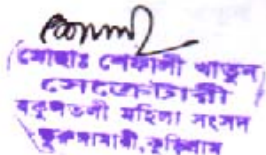 মোছাঃ শেফালী খাতুন
সেক্রেটারী
বকুলতলী মহিলা সংসদ
ভুরুঙ্গামারী, কুড়িগ্রাম